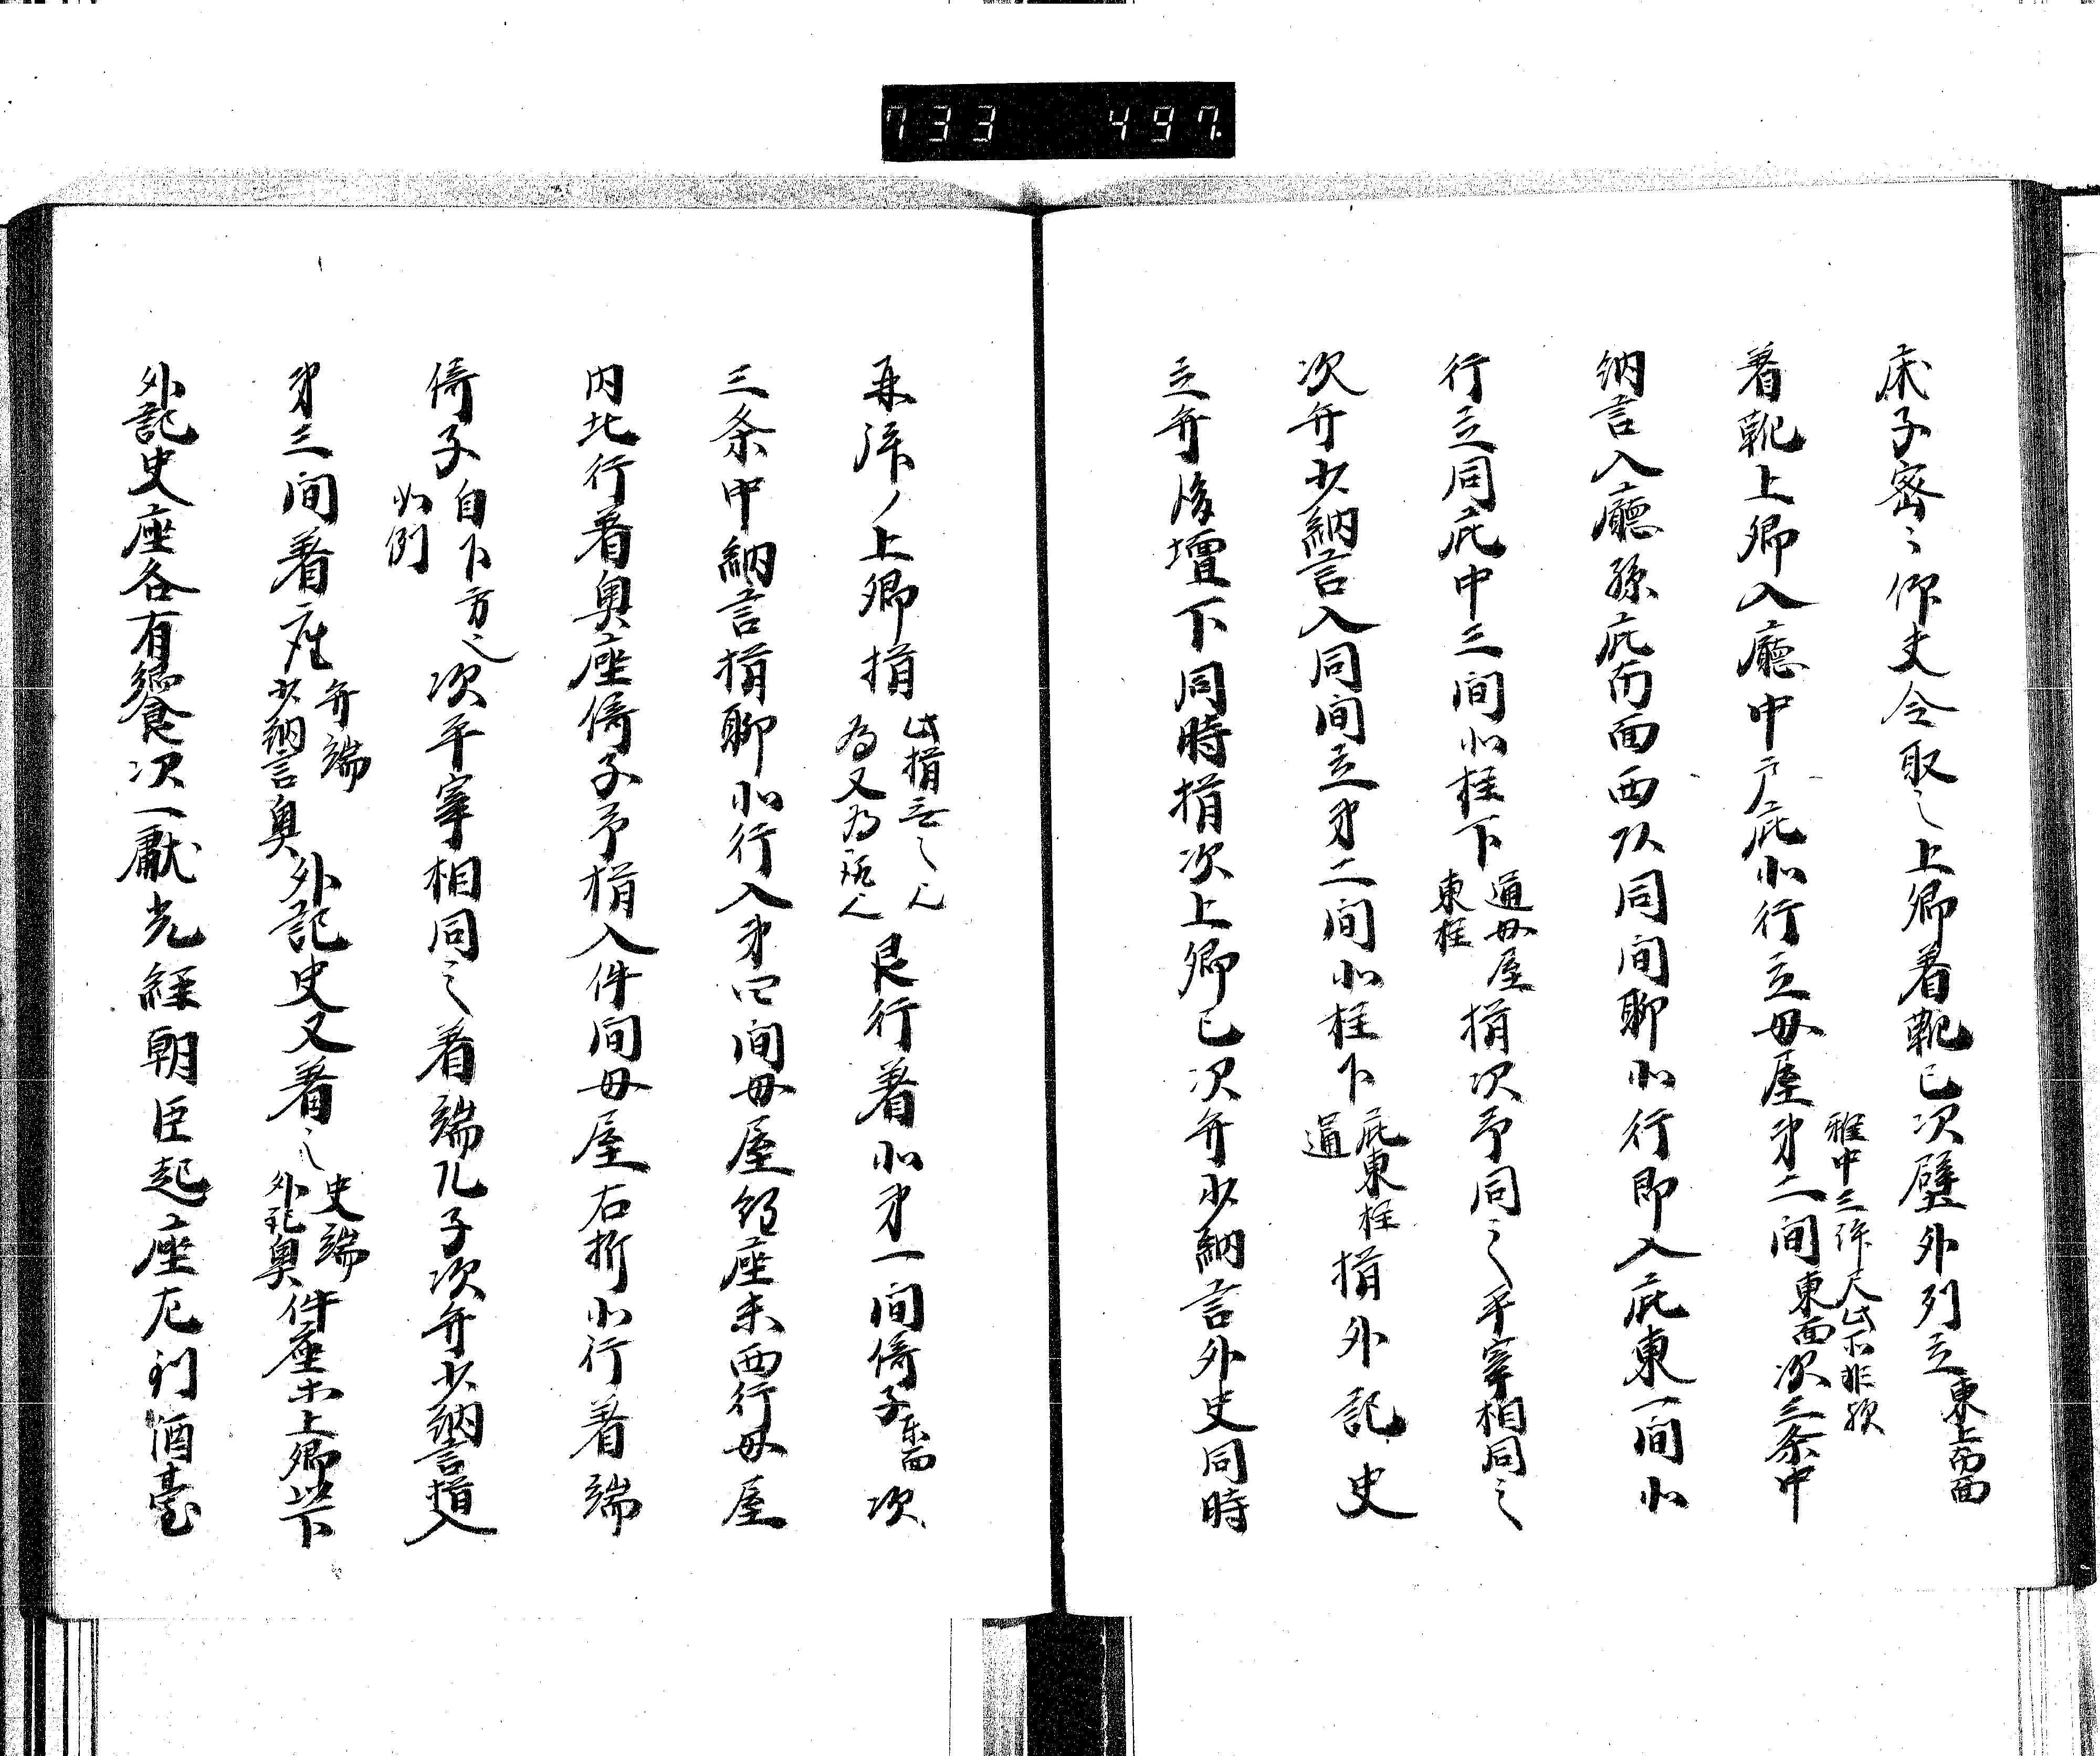 733 497.
床子密〻仰史令取之上卿着靴已次壁外列立東上南面
着靴上卿入廳中戸庇北行立母屋第二間東面次三条中
納言入廳孫庇南面西以同間聊北行即入庇東一間北
行立同庇中三間北柱下通母屋東柱揖次予同之平宰相同之
次弁少納言入同間立第二間北柱下庇東柱通揖外記史
立弁後壇下同時揖次上卿已次弁少納言外史同時
再拝ノ上卿揖此揖無之人為又為人艮行着北第一間倚子東面次
三条中納言揖聊北行入第四間母屋経座末西行母屋
内北行着奥座倚子予揖入件間母屋右折北行着端
倚子自下方之如例次平宰相同之着端兀子次弁少納言揖入
第三間着座弁端少納言奥外記史又着之史端外記奥件座末上卿以下
外記史座各有饗次一献光経朝臣起座左到酒臺